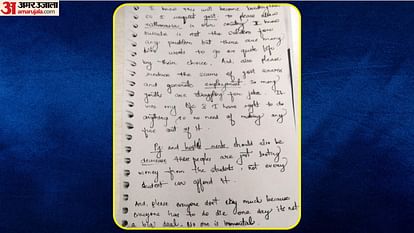 अमर उजाला
amarujala.com
I know this will become breaking
so I request govt. to please allow
euthanasia in our country. I know
suicide is not the solution for
any problem but there are many
who wants to go on quote life
by their choice. And, also please
reduce the scams of govt exams
and generate employment. So many
youths are struggling for jobs. It
was my life & I have right to do
anything so no need of making any
fuss out of it.
PG and hostel rents should also be
decrease these people are just looting
money from the students, not every
student can afford it.
And, please everyone don't cry much because
everyone has to die one day its not
a big deal. No one is immortal